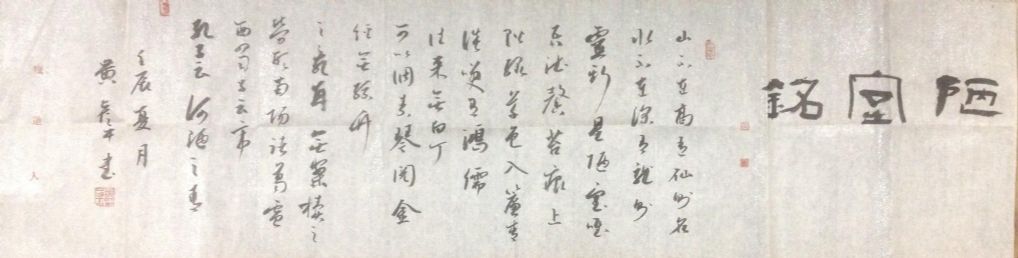 陋室銘
山不在高有仙則名
水不在深有龍則
靈斯是陋室唯
吾德馨苔痕上
階綠草色入簾青
談笑有鴻儒
往來無白丁
可以調素琴閱金
經無絲竹
之亂耳無案牘之
勞形南陽諸葛廬
西蜀子云亭
孔子云何陋之有
壬辰夏月
黃
書